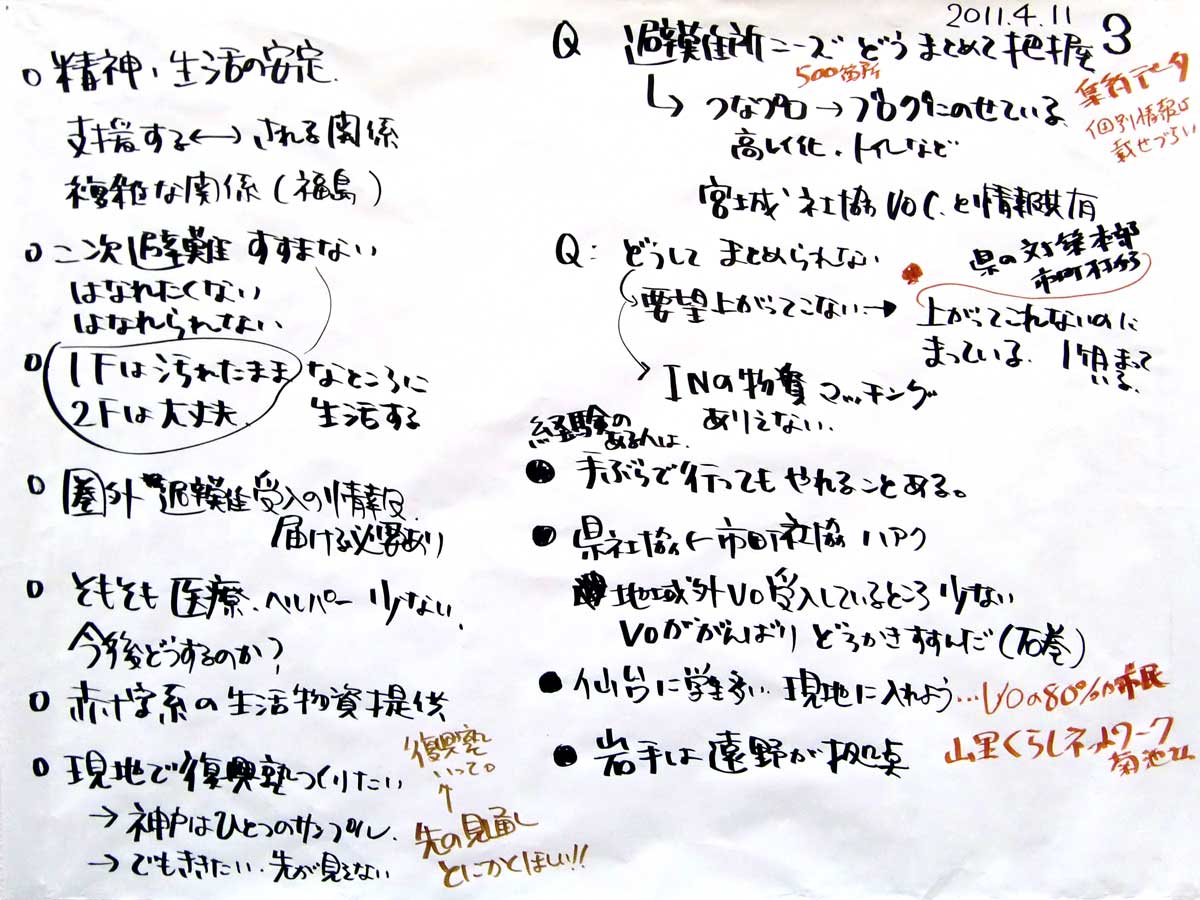 2011.4.11
3
○ 精神・生活の安定
支援する←→される関係
複雑な関係(福島)
○ 二次避難すすまない
はなれたくない
はなれられない
○ 1Fは汚れたまま なところに
2Fは大丈夫. 生活する
○ 圏外避難受入の情報.
届ける必要あり
○ そもそも医療・ヘルパー少ない.
今後どうするのか?
○ 赤十字系の生活物資提供
○ 現地で復興塾つくりたい
→ 神戸はひとつのサンプル.
→ でもききたい・先が見えない
復興塾
いって。
↑
先の見通し
とにかくほしい!!
Q 避難所ニーズどうまとめて把握
500箇所
集約データ
個別情報は
載せづらい
↳ つなプロ→ブログにのせている
高レイ化、トイレなど
宮城 社協VOC.と情報共有
Q: どうして まとめられない
県の対策本部
市町村分
要望上がってこない→ 上がってこれないのに
まっている. 1ヶ月まって
いる.
→ INの物資マッチング
ありえない.
経験の
ある人は.
● 手ぶらで行ってもやれることある。
● 県社協←市町社協ハアク
地域外VO受入しているところ少ない
VOががんばりどうかきすすんだ(石巻)
● 仙台に学生多い 現地に入れよう…VOの80%が市民
● 岩手は遠野が拠点
山里くらしネットワーク
菊池さん